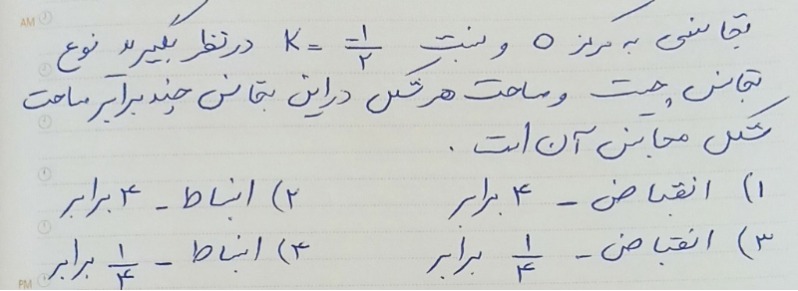 AM
تجانسی به مرکز O و نسبت K = -1/۲ درنظر بگیرید نوع
تجانس چیست و مساحت هر شکل دراین تجانس چند برابر مساحت
شکل مجانس آن است .
۱) انقباض - ۴ برابر ۲) انبساط - ۴ برابر
۳) انقباض - ۱/۴ برابر ۴) انبساط - ۱/۴ برابر
PM